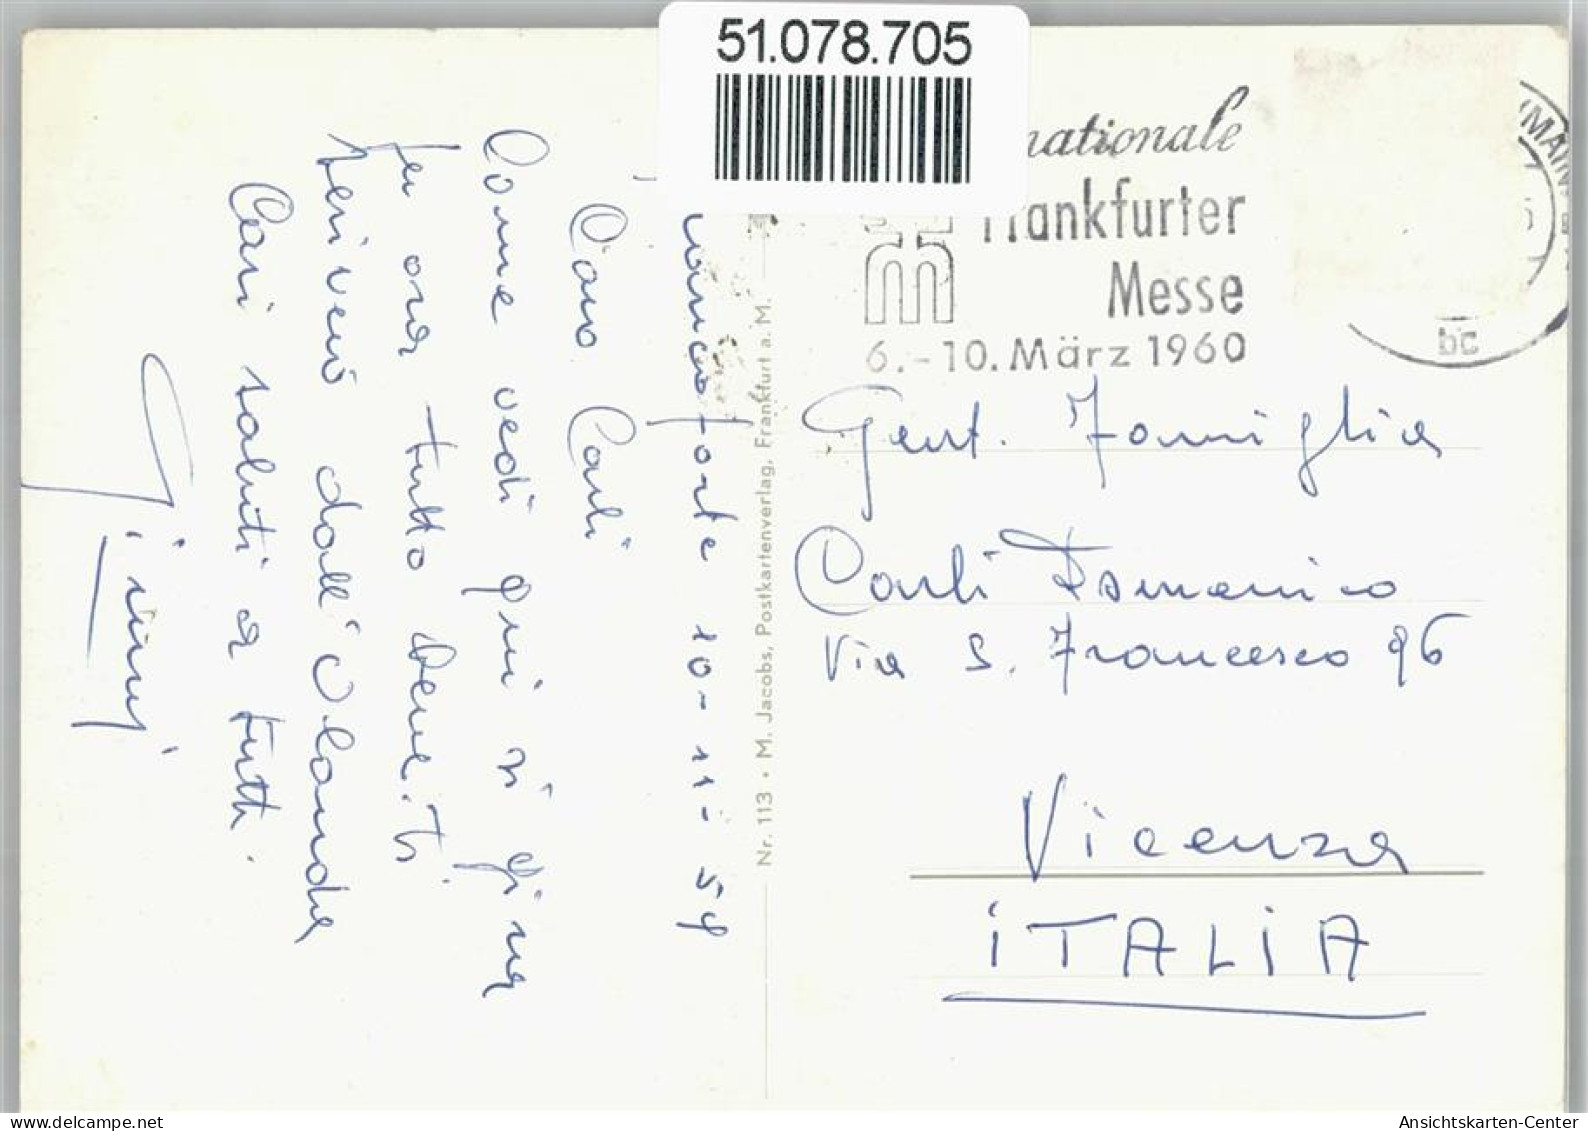 51.078.705
nationale
Frankfurter
Messe
6.-10. März 1960
bc
Francoforte 10-11-59
Caro Carli
Come vedi qui si gira
per ora tutto bene. Ti
scriverò dall'Olanda
Cari saluti a tutti.
Nr. 113 • M. Jacobs, Postkartenverlag, Frankfurt a. M.
Gent. Famiglia
Carli Domenico
Via S. Francesco 96
Vicenza
iTALiA
www.oldthing.de
Ansichtskarten-Center